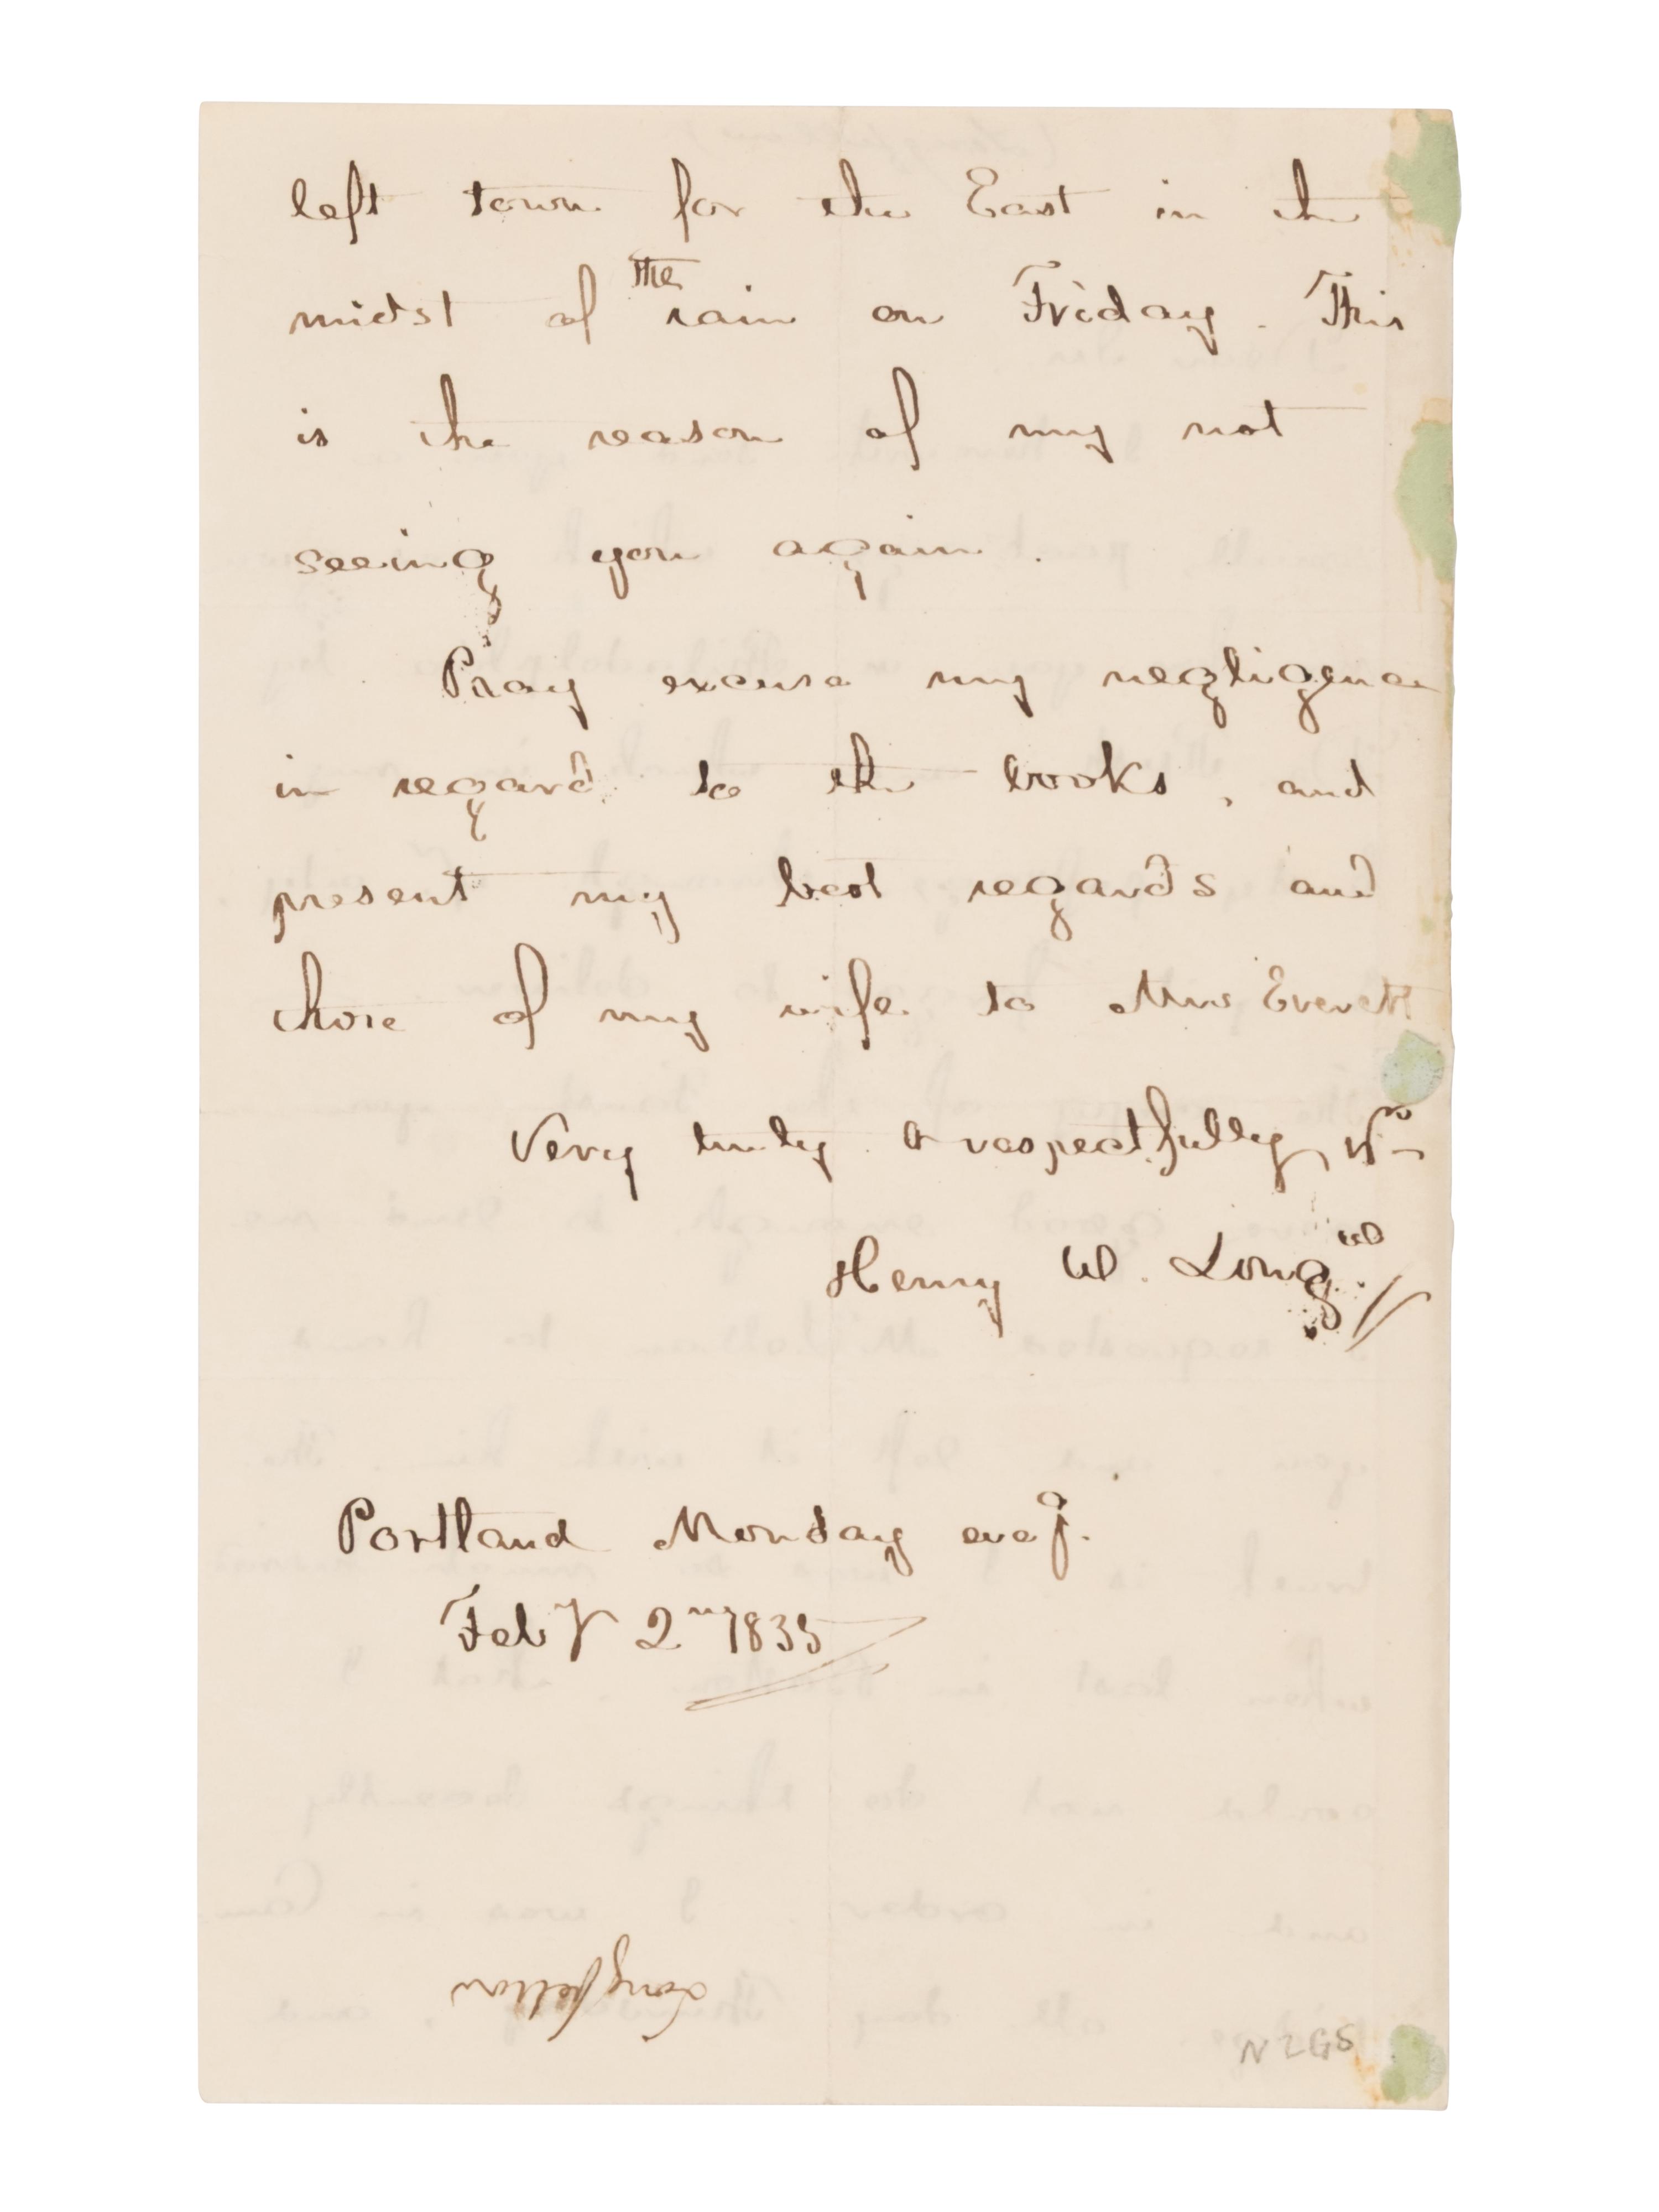 left town for the East in the
midst of the rain on Friday. This
is the reason of my not
seeing you again.
Pray excuse my negligence
in regard to the books, and
present my best regards and
those of my wife to Mrs Everett
Very truly & respectfully, yrs
Henry W. Long
Portland Monday eveg.
Feby 2nd 1835
Longfellow
N2GS